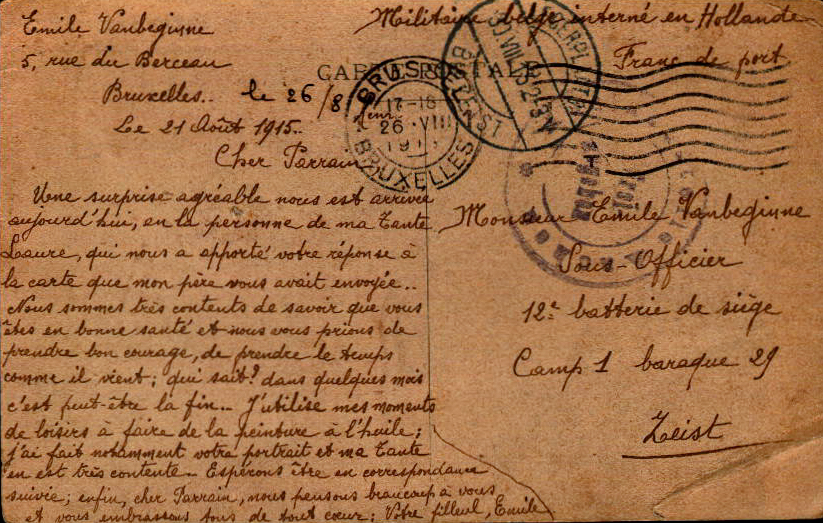 Emile Vanbeginne
5, rue du Berceau
Bruxelles.. le 26/8
Le 21 Août 1915..
Cher Parrain
Une surprise agréable nous est arrivée
aujourd'hui, en la personne de ma Tante
Laure, qui nous a apporté votre réponse à
la carte que mon père vous avait envoyée..
Nous sommes très contents de savoir que vous
êtes en bonne santé et nous vous prions de
prendre bon courage, de prendre le temps
comme il vient; qui sait? dans quelques mois
c'est peut-être la fin.. J'utilise mes moments
de loisirs à faire de la peinture à l'huile;
j'ai fait notamment votre portrait et ma Tante
en est très contente.. Espérons être en correspondance
suivie; enfin, cher Parrain, nous pensons beaucoup à vous
et vous embrassons tous de tout cœur; Votre filleul, Emile
CARTE POSTALE
BRUXELLES
17-18
26 VIII
BRUSSEL
Militaire belge interné en Hollande
Franc de port
Monsieur Emile Vanbeginne
Sous-Officier
12e batterie de siège
Camp 1 baraque 29
Zeist